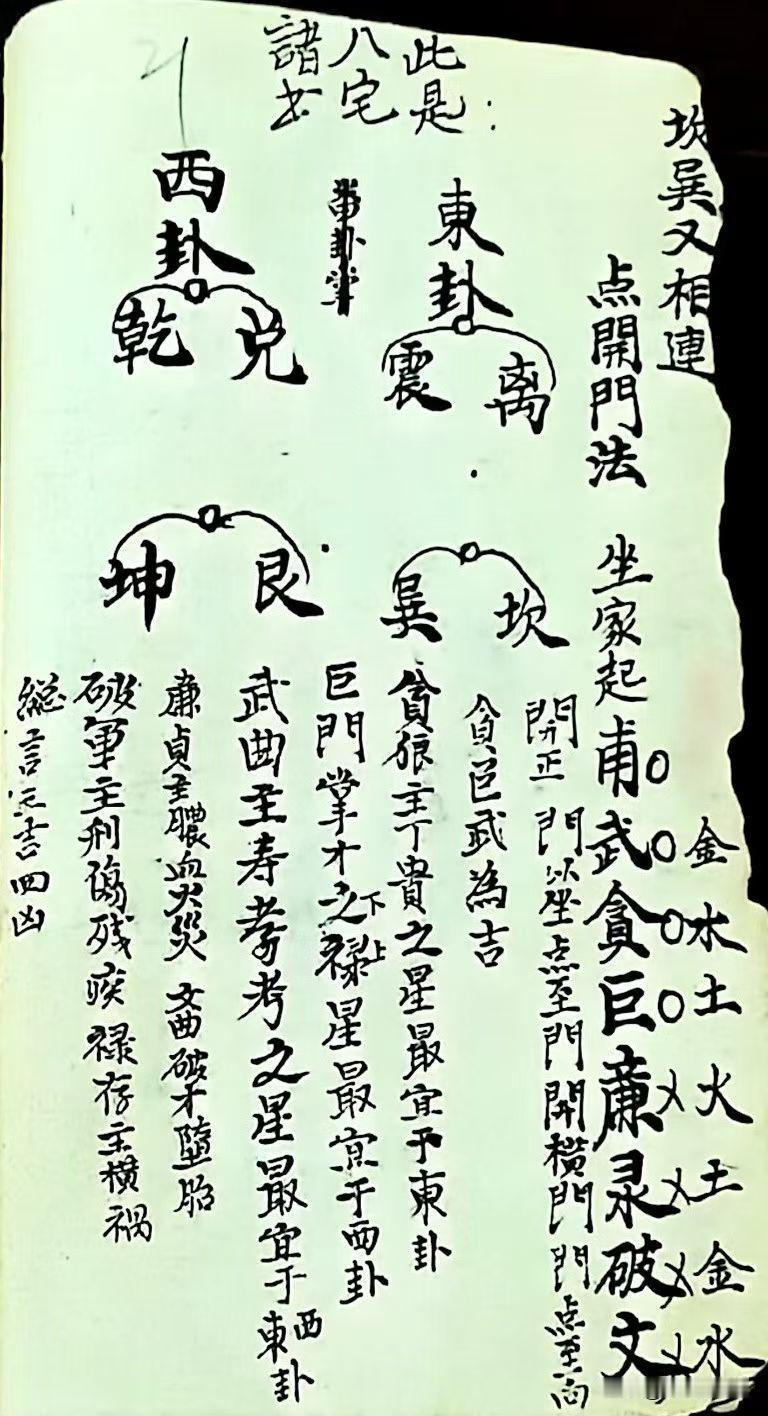 坎巽又相連
点開門法
坐家起甫武貪巨廉录破文
金水土火土金水
開正門以坐点至門開横門門点至向
此是
八宅
諸书
東卦
震 离
巽 坎
西卦
乾 兑
坤 艮
貪巨武為吉
貪狼主丁貴之星最宜于東卦
巨門掌才之下禄上星最宜于西卦
武曲主寿考之星最宜于西東卦
廉貞主膿血火災 文曲破才墮胎
破軍主刑傷残疾 禄存主横禍
總言三吉四凶